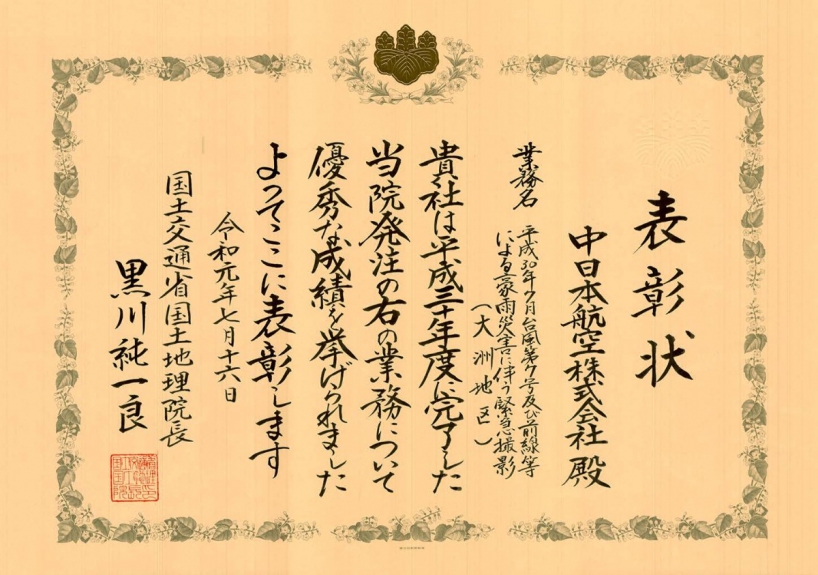 表彰状
中日本航空株式会社 殿
業務名 平成30年7月台風第7号及び前線等
による豪雨災害に伴う緊急撮影
(大洲地区)
貴社は平成三十年度に完了した
当院発注の右の業務について
優秀な成績を挙げられました
よってここに表彰します
令和元年七月十六日
国土交通省国土地理院長
黒川純一良